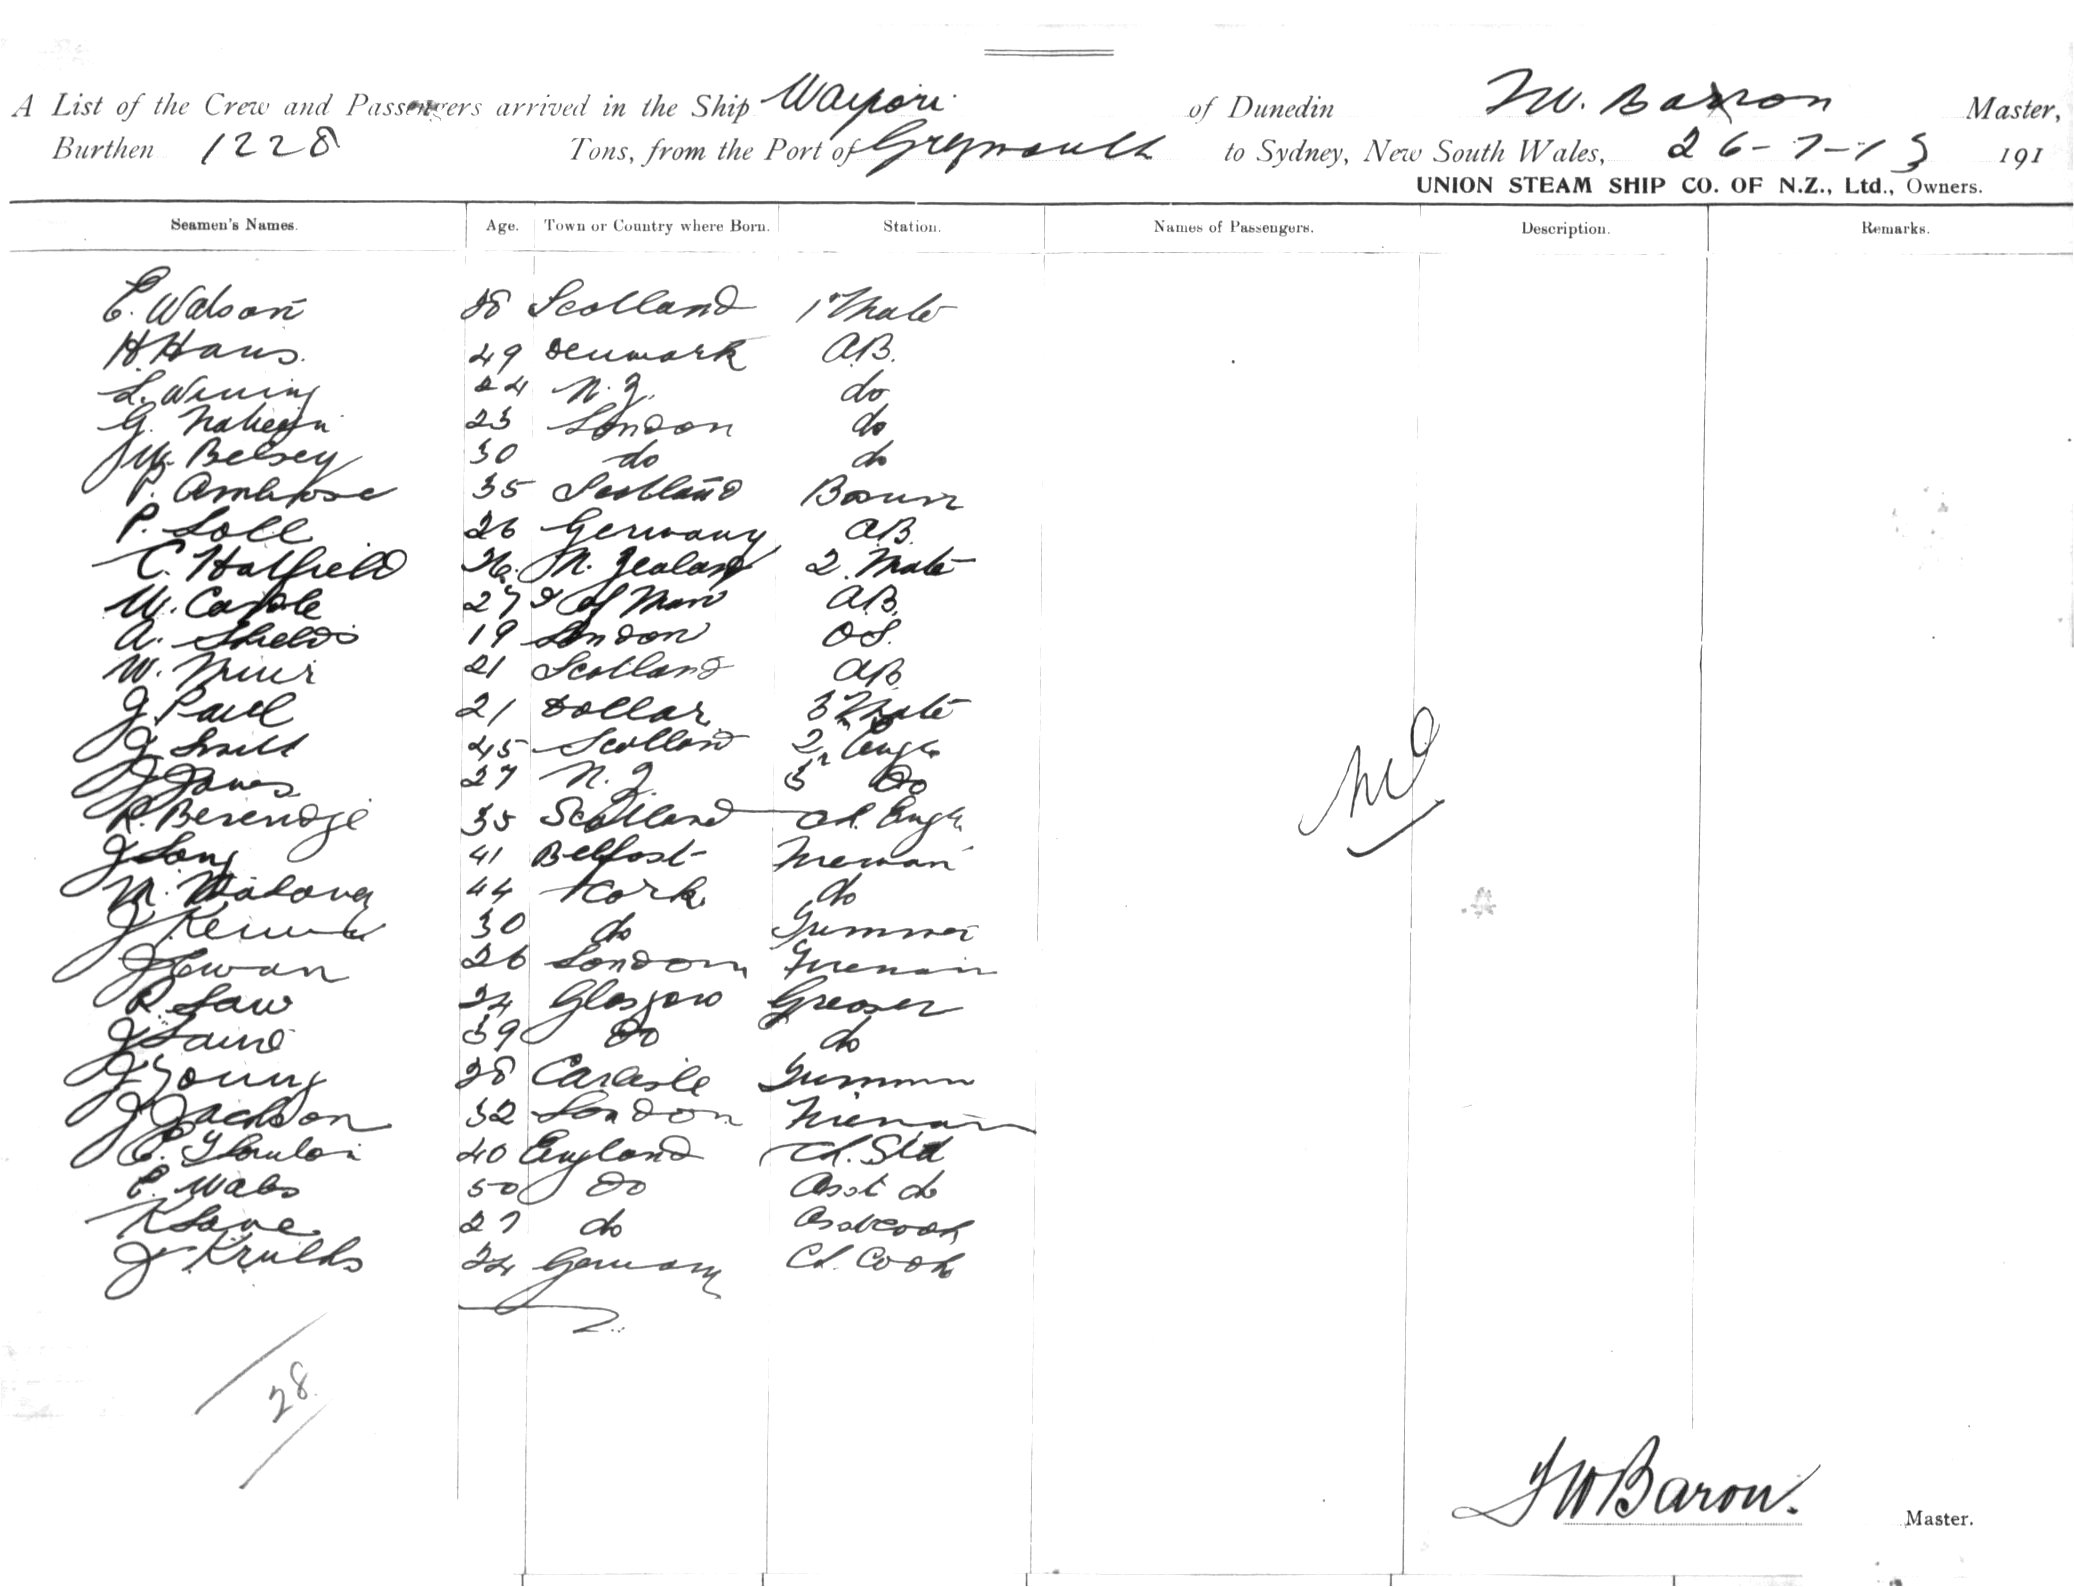 A List of the Crew and Passengers arrived in the Ship Waipori of Dunedin W. Baron Master,
Burthen 1228 Tons, from the Port of Greymouth to Sydney, New South Wales, 26-7-13 191
UNION STEAM SHIP CO. OF N.Z., Ltd., Owners.
Seamen's Names. Age. Town or Country where Born. Station. Names of Passengers. Description. Remarks.
E. Watson 28 Scotland 1st Mate
H. Hans. 49 Denmark A.B.
L. 24 N.Z. do
G. 23 London do
W. Belsey 30 do do
P. Ambrose 35 Scotland Bosun
P. Loll 26 Germany A.B.
C. Hatfield N. Zealand 2. Mate
W. 27 I of Man A.B.
A. Shields 19 London O.S.
W. Muir 21 Scotland A.B.
J. Paul 21 Dollar 3 Mate
J. Smith 45 Scotland 2n Engr
J. Jones 27 N.Z. 3r Do
R. Beveridge 35 Scotland Ch. Engr.
J. Long 41 Belfast Fireman
M. Mahoney 44 Cork do
J. 30 do Trimmer
J. Ewan 26 London Fireman
R. Law 34 Glasgow Greaser
J. Laird 39 Do do
J. Young 28 Carlisle Trimmer
J. Jackson 32 London Fireman
E. 40 England Ch. Std
E. 50 Do Asst do
K. Lane 27 do Asst cook
J. 24 Germany Ch. Cook
28
W Baron.
Master.